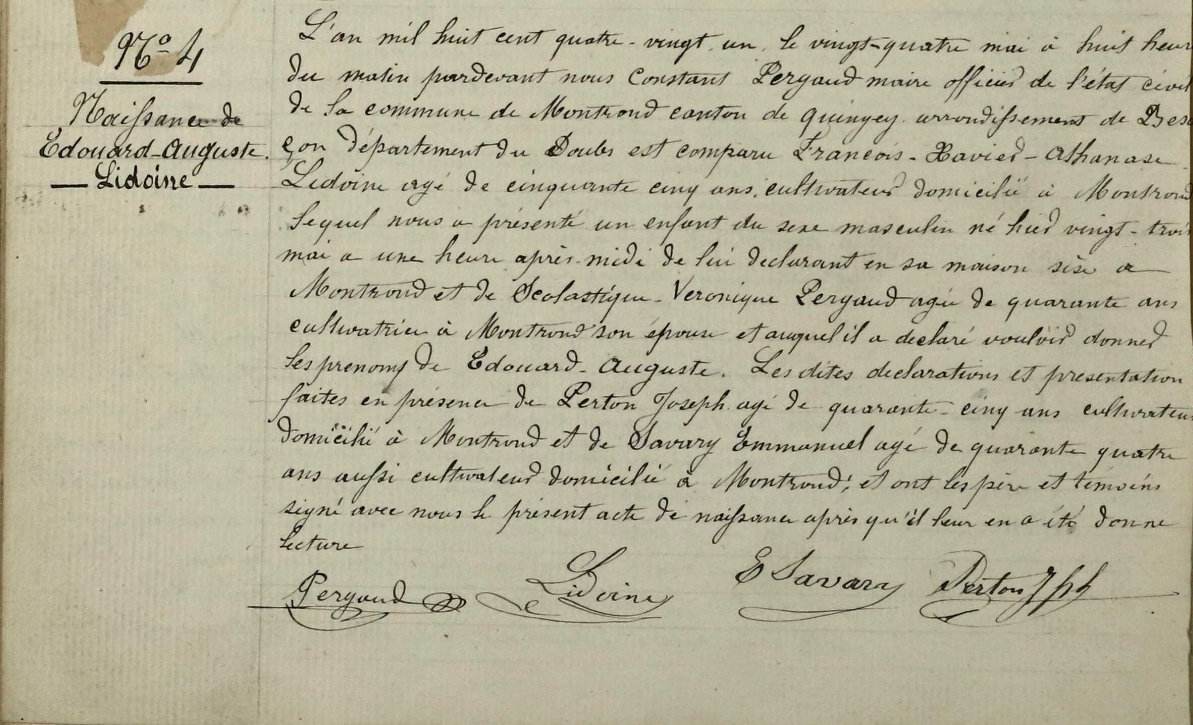 Nº 4
Naissance de
Edouard-Auguste
Lidoine
L'an mil huit cent quatre-vingt un, le vingt-quatre mai à huit heur
du matin pardevant nous Constant Pergaud maire officier de l'état civil
de la commune de Montrond canton de quingey arrondissement de Besa
çon département du Doubs est comparu Francois-Xavier-Athanase
Lidoine agé de cinquante cinq ans, cultivateur domicilié à Montrond
lequel nous a présenté un enfant du sexe masculin né hier vingt-trois
mai a une heure après-midi de lui declarant en sa maison sise a
Montrond et de Scolastique-Veronique Pergaud agée de quarante ans
cultivatrice à Montrond son épouse et auquel il a declaré vouloir donner
les prenoms de Edouard-Auguste. Les dites declarations et presentation
faites en présence de Perton Joseph agé de quarante-cinq ans cultivateur
domicilié à Montrond et de Savary Emmanuel agé de quarante quatre
ans aussi cultivateur domicilié à Montrond; et ont les père et témoins
signé avec nous le présent acte de naissance après qu'il leur en a été donné
lecture
Pergaud Lidoine E Savary Perton Jph